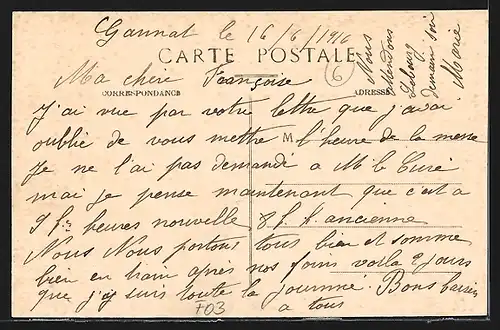 Gannat le 16/6/1916
CARTE POSTALE
6
Ma chère Françoise
CORRESPONDANCE
ADRESSE
J'ai vue par votre lettre que j'avai
oublié de vous mettre l'heure de la messe
M
Je ne l'ai pas demandé a M le Curé
mai je pense maintenant que c'est a
9 h heures nouvelle 8 h ancienne
Nous Nous portons tous bien et somme
bien en train après nos foins voila 2 jours
que j'y suis toute la journné. Bons baisers
a tous
703
Nous
attendons
demain soir
Marie